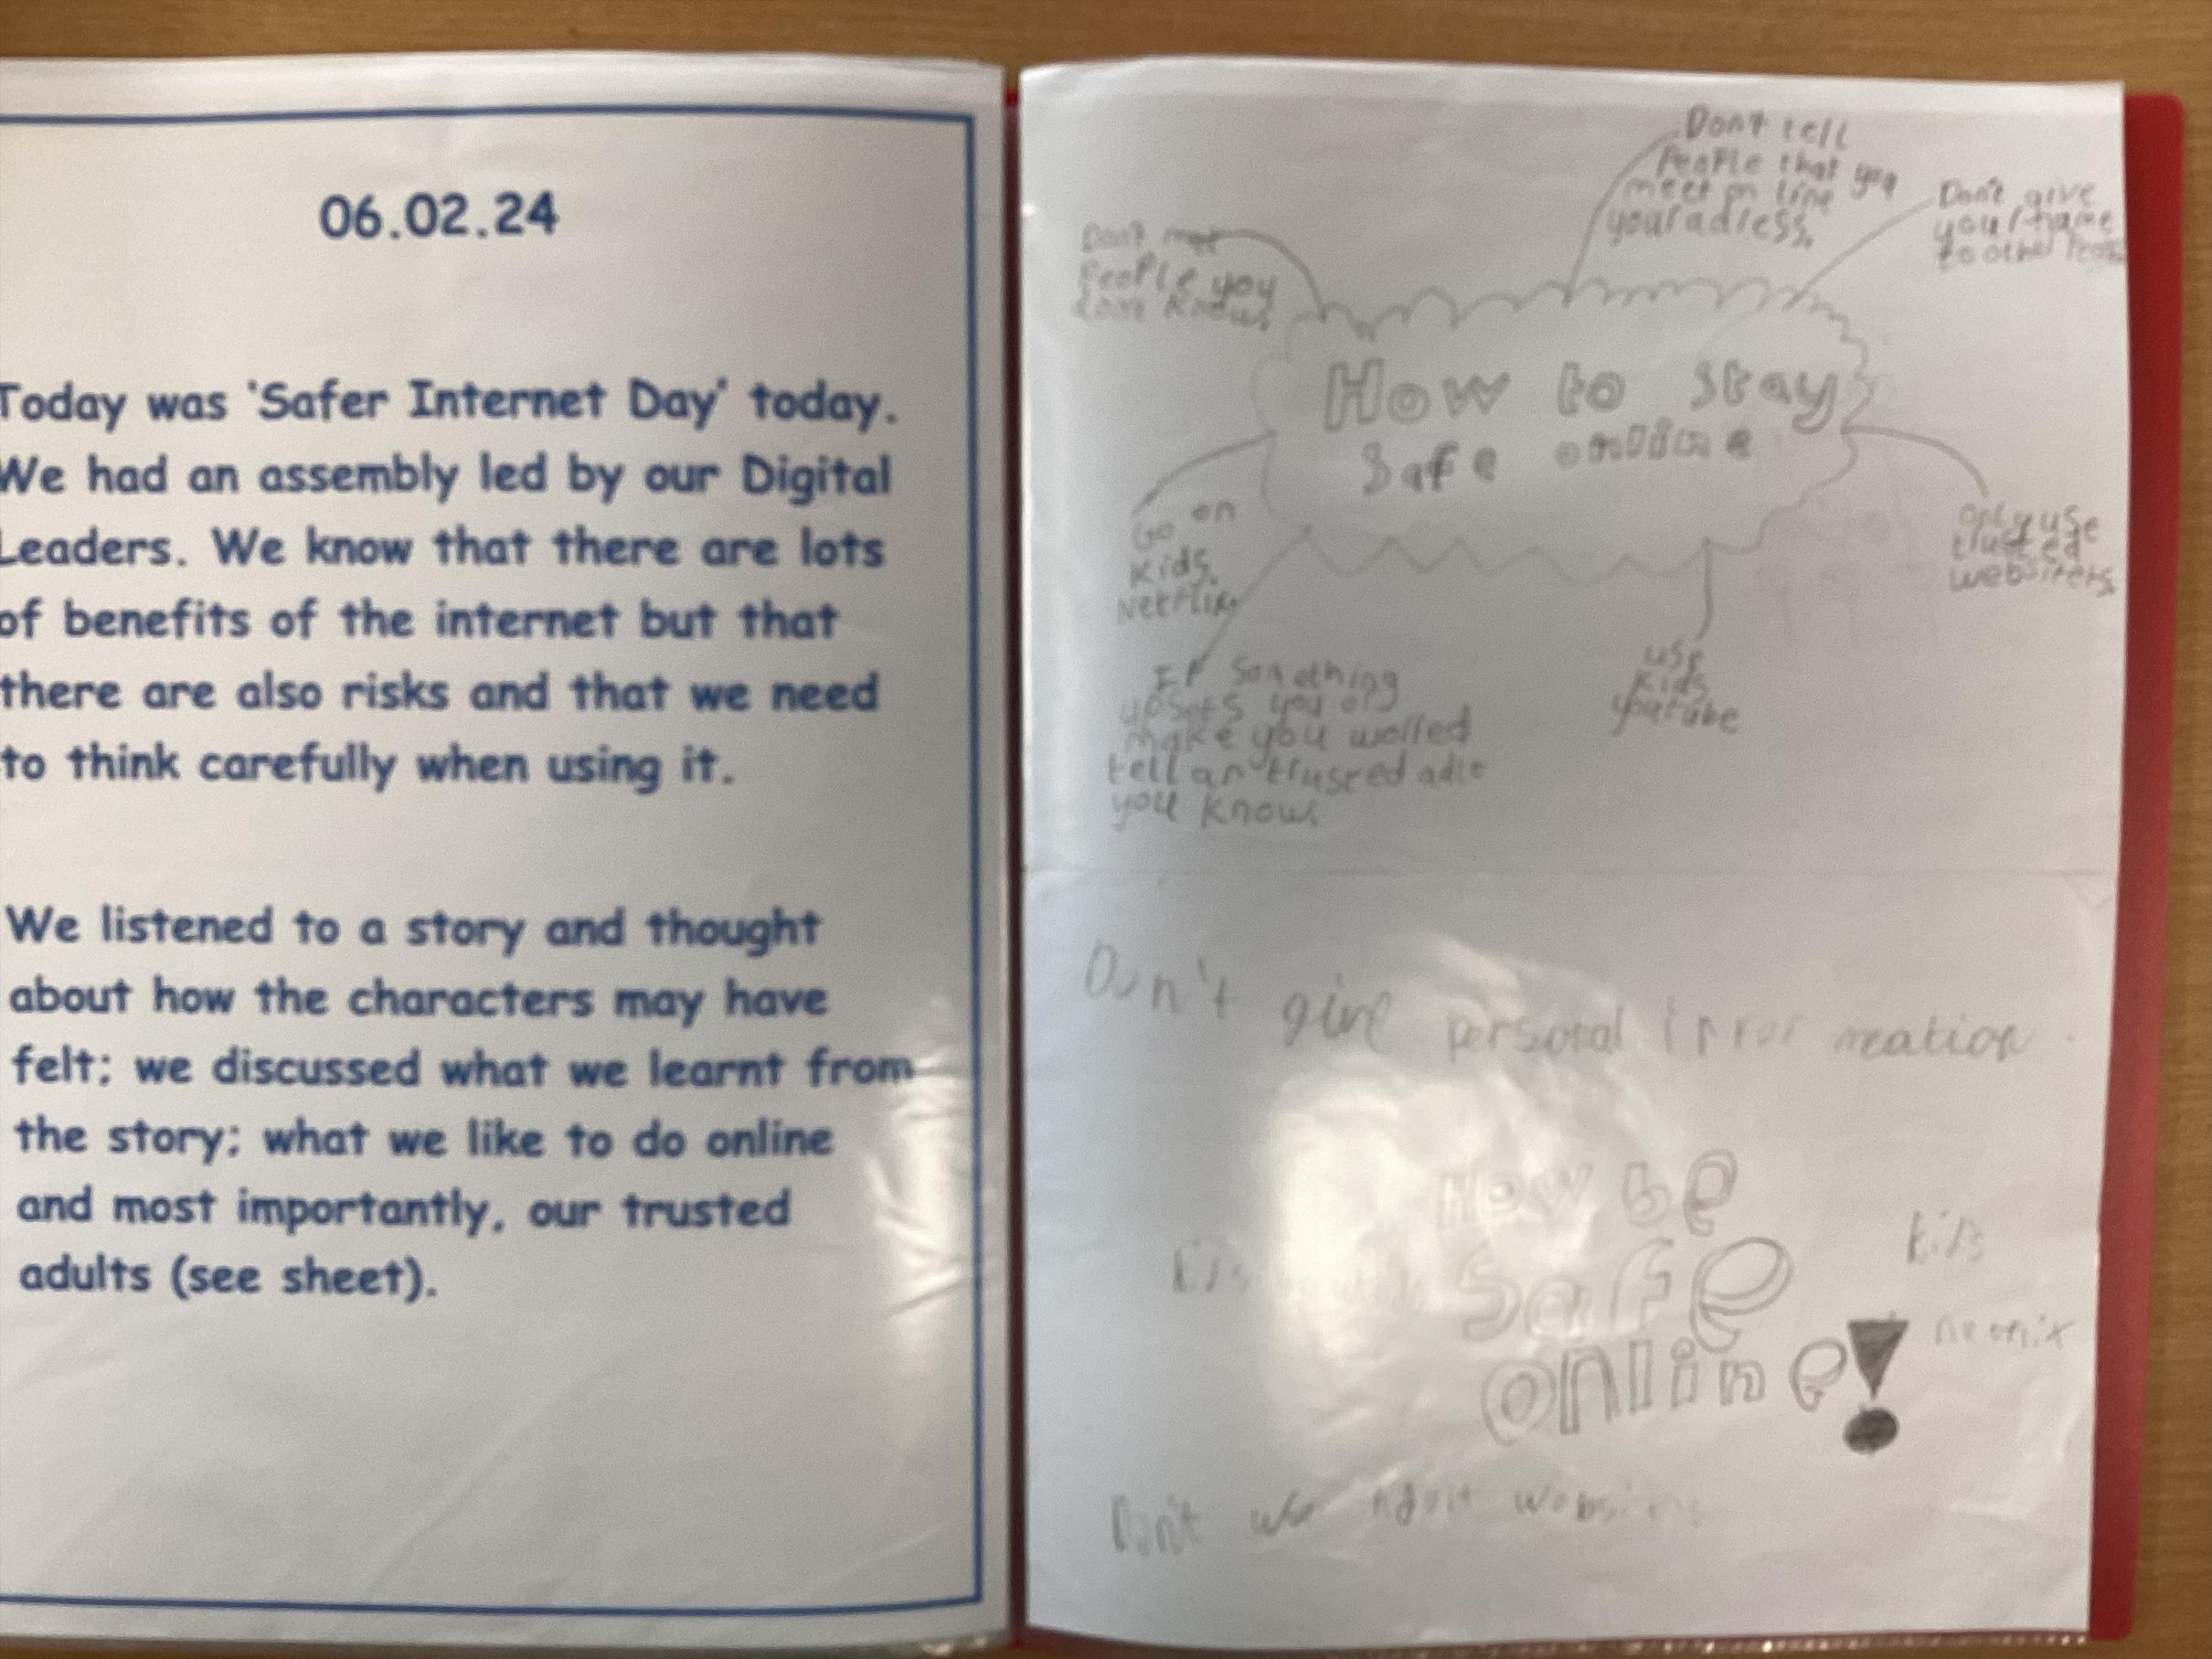 06.02.24
Today was 'Safer Internet Day' today.
We had an assembly led by our Digital
Leaders. We know that there are lots
of benefits of the internet but that
there are also risks and that we need
to think carefully when using it.
We listened to a story and thought
about how the characters may have
felt; we discussed what we learnt from
the story; what we like to do online
and most importantly, our trusted
adults (see sheet).
Don't tell
People that you
meet on line
your adless.
Don't give
your name
to other
Don't met
People you
dont know.
How to stay
Safe online
Go on
Kids.
Netflix
only use
trusted
websiters.
If Somethihg
upsets you
make you wolled
tell an trusted adlt
you know.
use
Kids
youtube
Don't give personal
How be
Safe
online!
kids
Don't adult